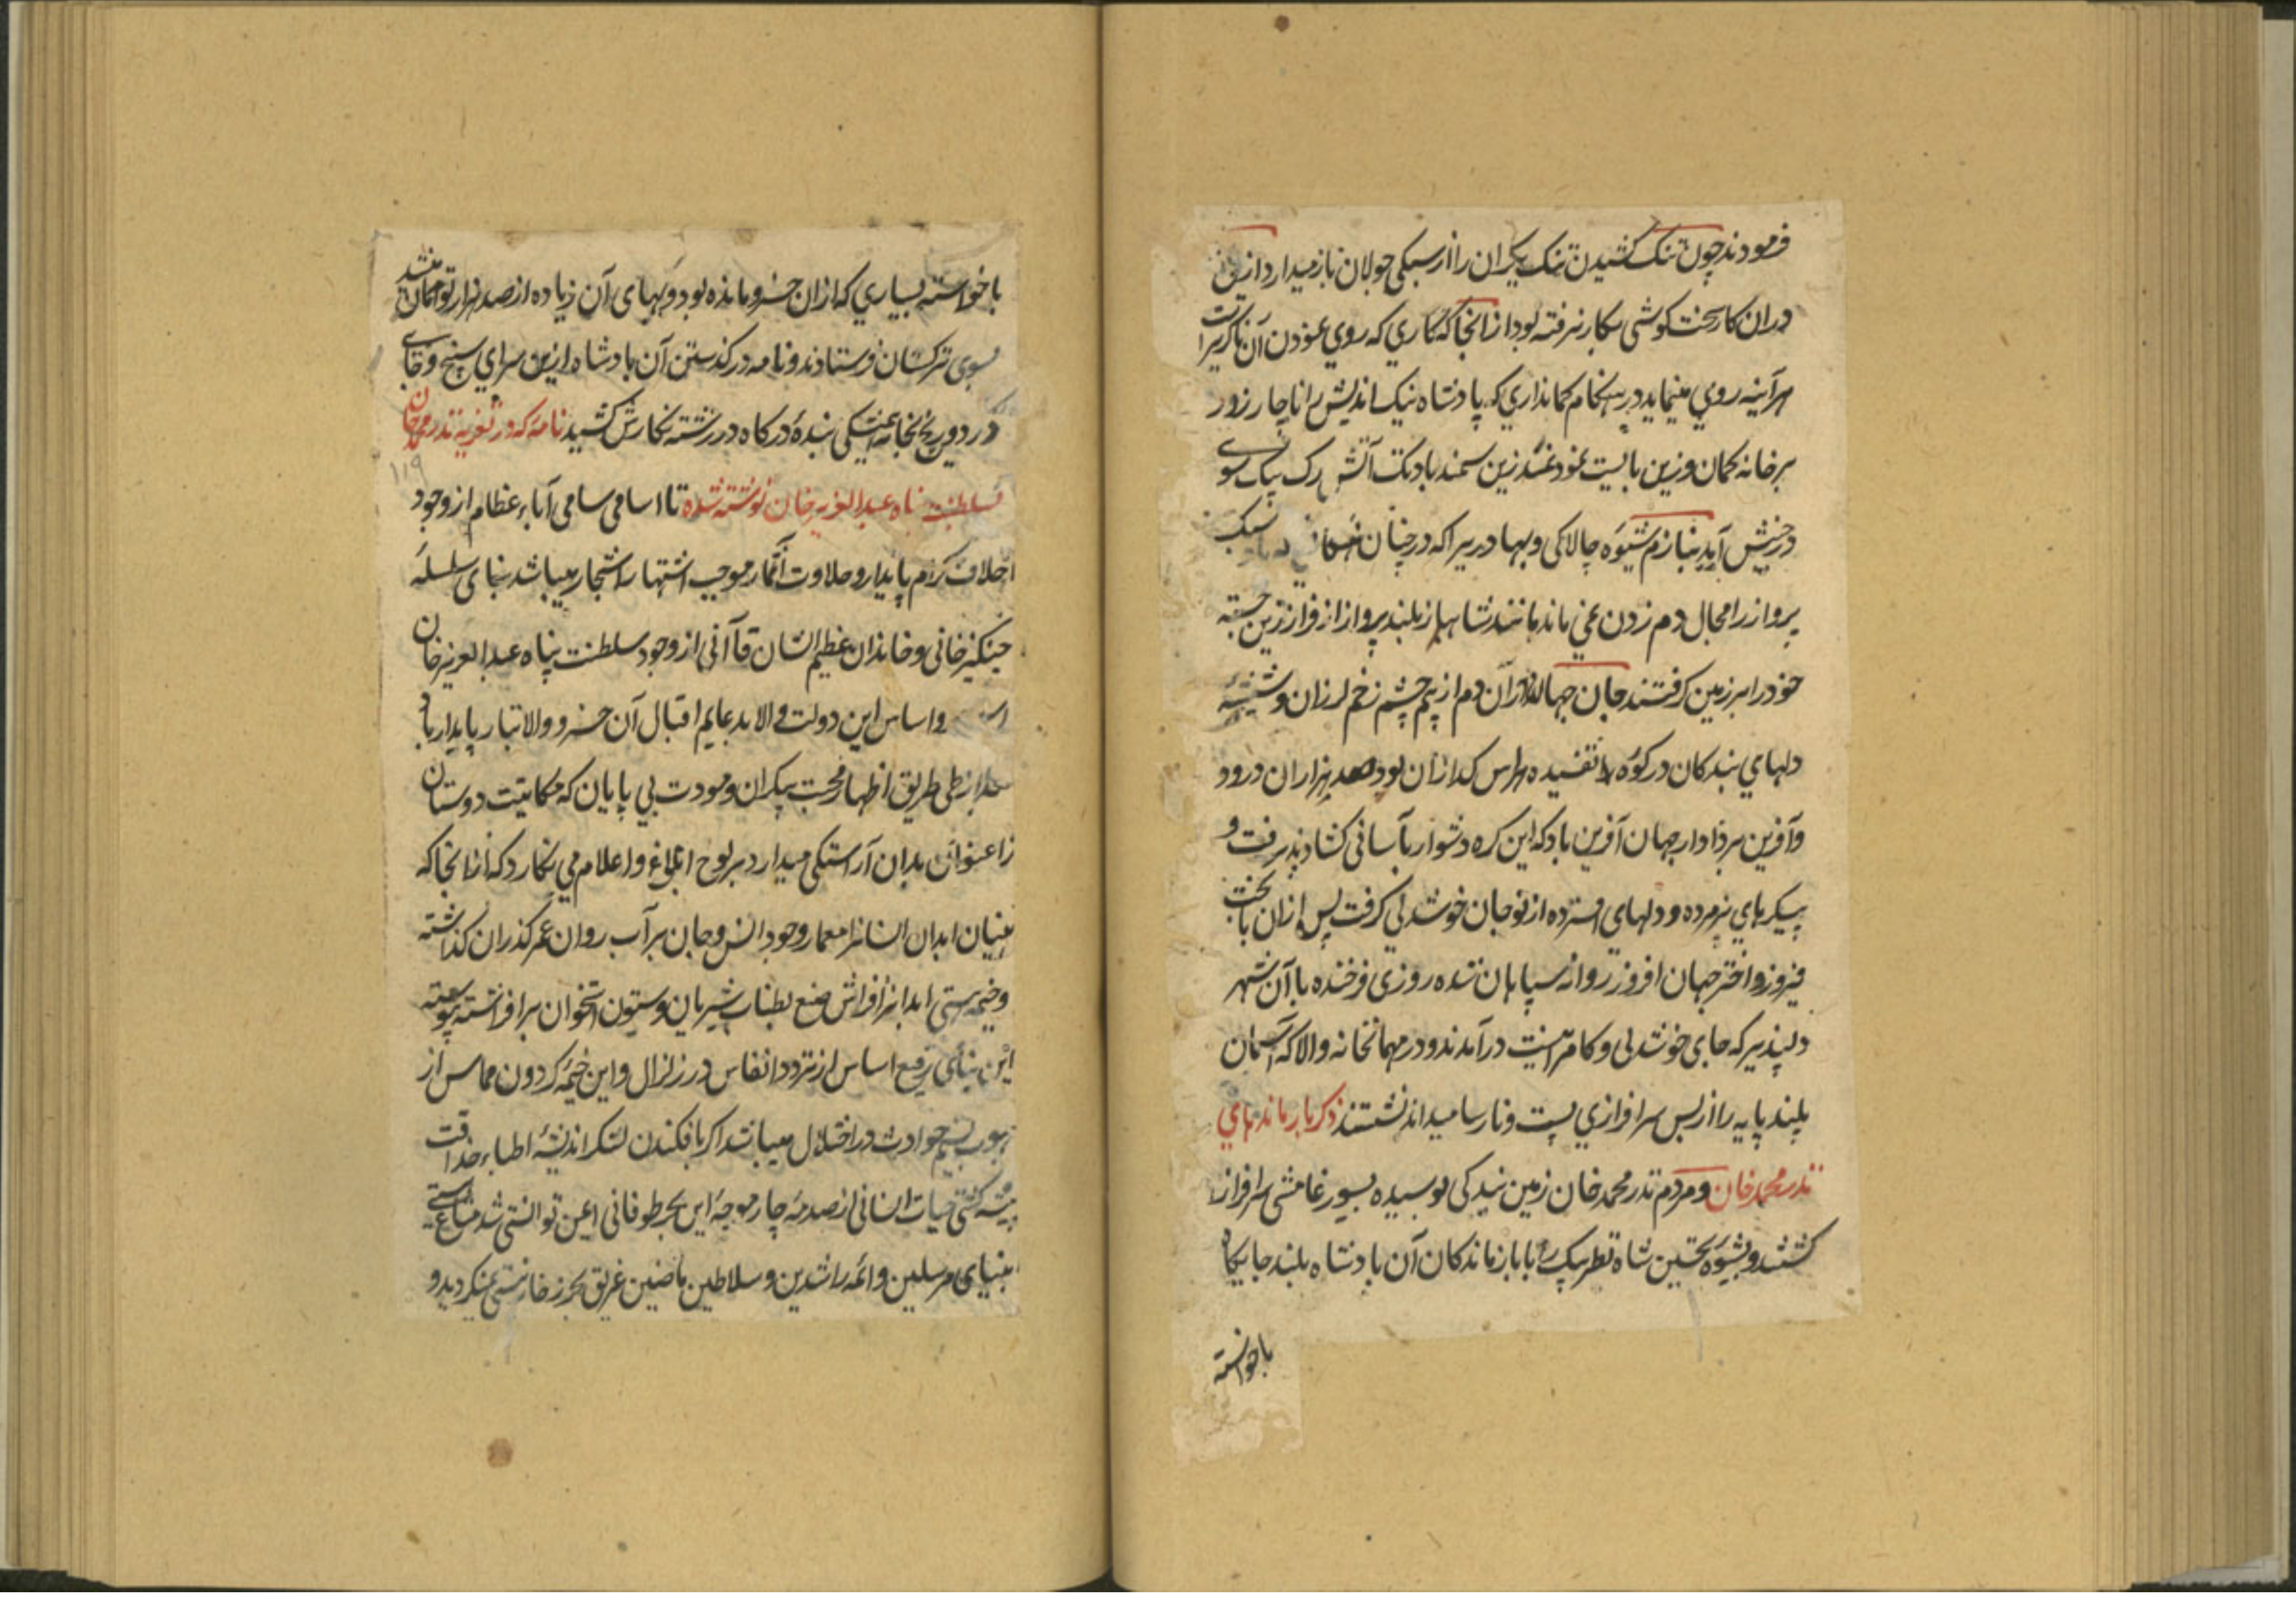 فرمودند چون تنک کشیدن تنک یکران را از سبکی جولان باز میدارد ازین
دران کار سخت کوشی بکار نرفته بود از انجا که کاری که روی نمودن آن ناگزیر است
هرآینه روی مینماید در هنکام کمانداری که پادشاه نیک اندیش را ناچار زور
بر خانه کمان و زین بایست نمود غد زین سمند بادتک آتش رک بیک سوی
در جنبش آید بنازم شیوه چالاکی و بهادری را که در چنان سبک
پرواز را مجال دم زدن نمی ماند مانند شاهباز بلند پرواز از فراز زین جسته
خود را بر زمین کرفتند جان جهانیان دران دم از بیم چشم زخم لرزان و شیشه
دلهای بندکان در کوره تفسیده هراس کدازان بود صد هزاران درود
و آفرین بر دادار جهان آفرین باد که این کره دشوار بآسانی کشاد پذیرفت و
پیکرهای پژمرده و دلهای افسرده از نو جان خوشدلی کرفت پس ازان با بخت
فیروز و اختر جهان افروز روانه سپاهان شده روزی فرخنده با آن شهر
دلپذیر که جای خوشدلی و کامرانیست درآمدند و در مهمانخانه والا که آسمان
بلند پایه را از بس سرافرازی پست و نارسا میداند نشستند ذکر بازماندهای
ندر محمد خان و مردم ندر محمد خان زمین بندکی بوسیده بسیورغامشی سرافراز
کشتند و بشیوه نخستین شاه نظر بیک را با بازماندکان آن پادشاه بلند جایکاه
باخواسته
باخواسته بسیاری که ازان خسرو مانده بود و بهای آن زیاده از صد هزار تومان میشد
بسوی ترکستان فرستادند و نامه در کذشتن آن پادشاه ازین سرای سپنج و جای
درد و رنج بخامه بندهٔ درکاه در رشته نکارش کشید نامه که در تعزیه ندر محمد خان
۱۱۹
بسلطنت پناه عبدالعزیز خان نوشته شده تا اسامی سامی آباء عظام از وجود
اخلاف کرام پایدار و حلاوت اثمار موجب اشتهار اشجار میباشد بنای سلسله
چنکیز خانی و خاندان عظیم الشان قاآنی از وجود سلطنت پناه عبدالعزیز خان
و اساس این دولت والا بدعایم اقبال آن خسرو والاتبار پایدار باد
بعد از طی طریق اظهار محبت بیکران و مودت بی پایان که مکاتبت دوستان
را عنوان بدان آراستکی میدارد بر لوح ابلاغ و اعلام می نکارد که از انجا که
بنیان ابدان انسانرا معمار وجود انس و جان بر آب روان عمر کذران کذاشته
و خیمه هستی ابدانرا فراش صنع بطناب شریان و ستون استخوان برافراشته پیوسته
این بنای رفیع اساس از تردد انفاس در زلزال و این خیمه کردون مماس از
هبوب نسیم حوادث در اختلال میباشد اکر بافکندن لنکر اندیشهٔ اطباء حذاقت
پیشه کشتی حیات انسانی از صدمه چار موجه این بحر طوفانی ایمن توانستی شد متاع هستی
انبیای مرسلین و ائمه راشدین و سلاطین ماضین غریق بحر زخار نیستی نمیکردید و